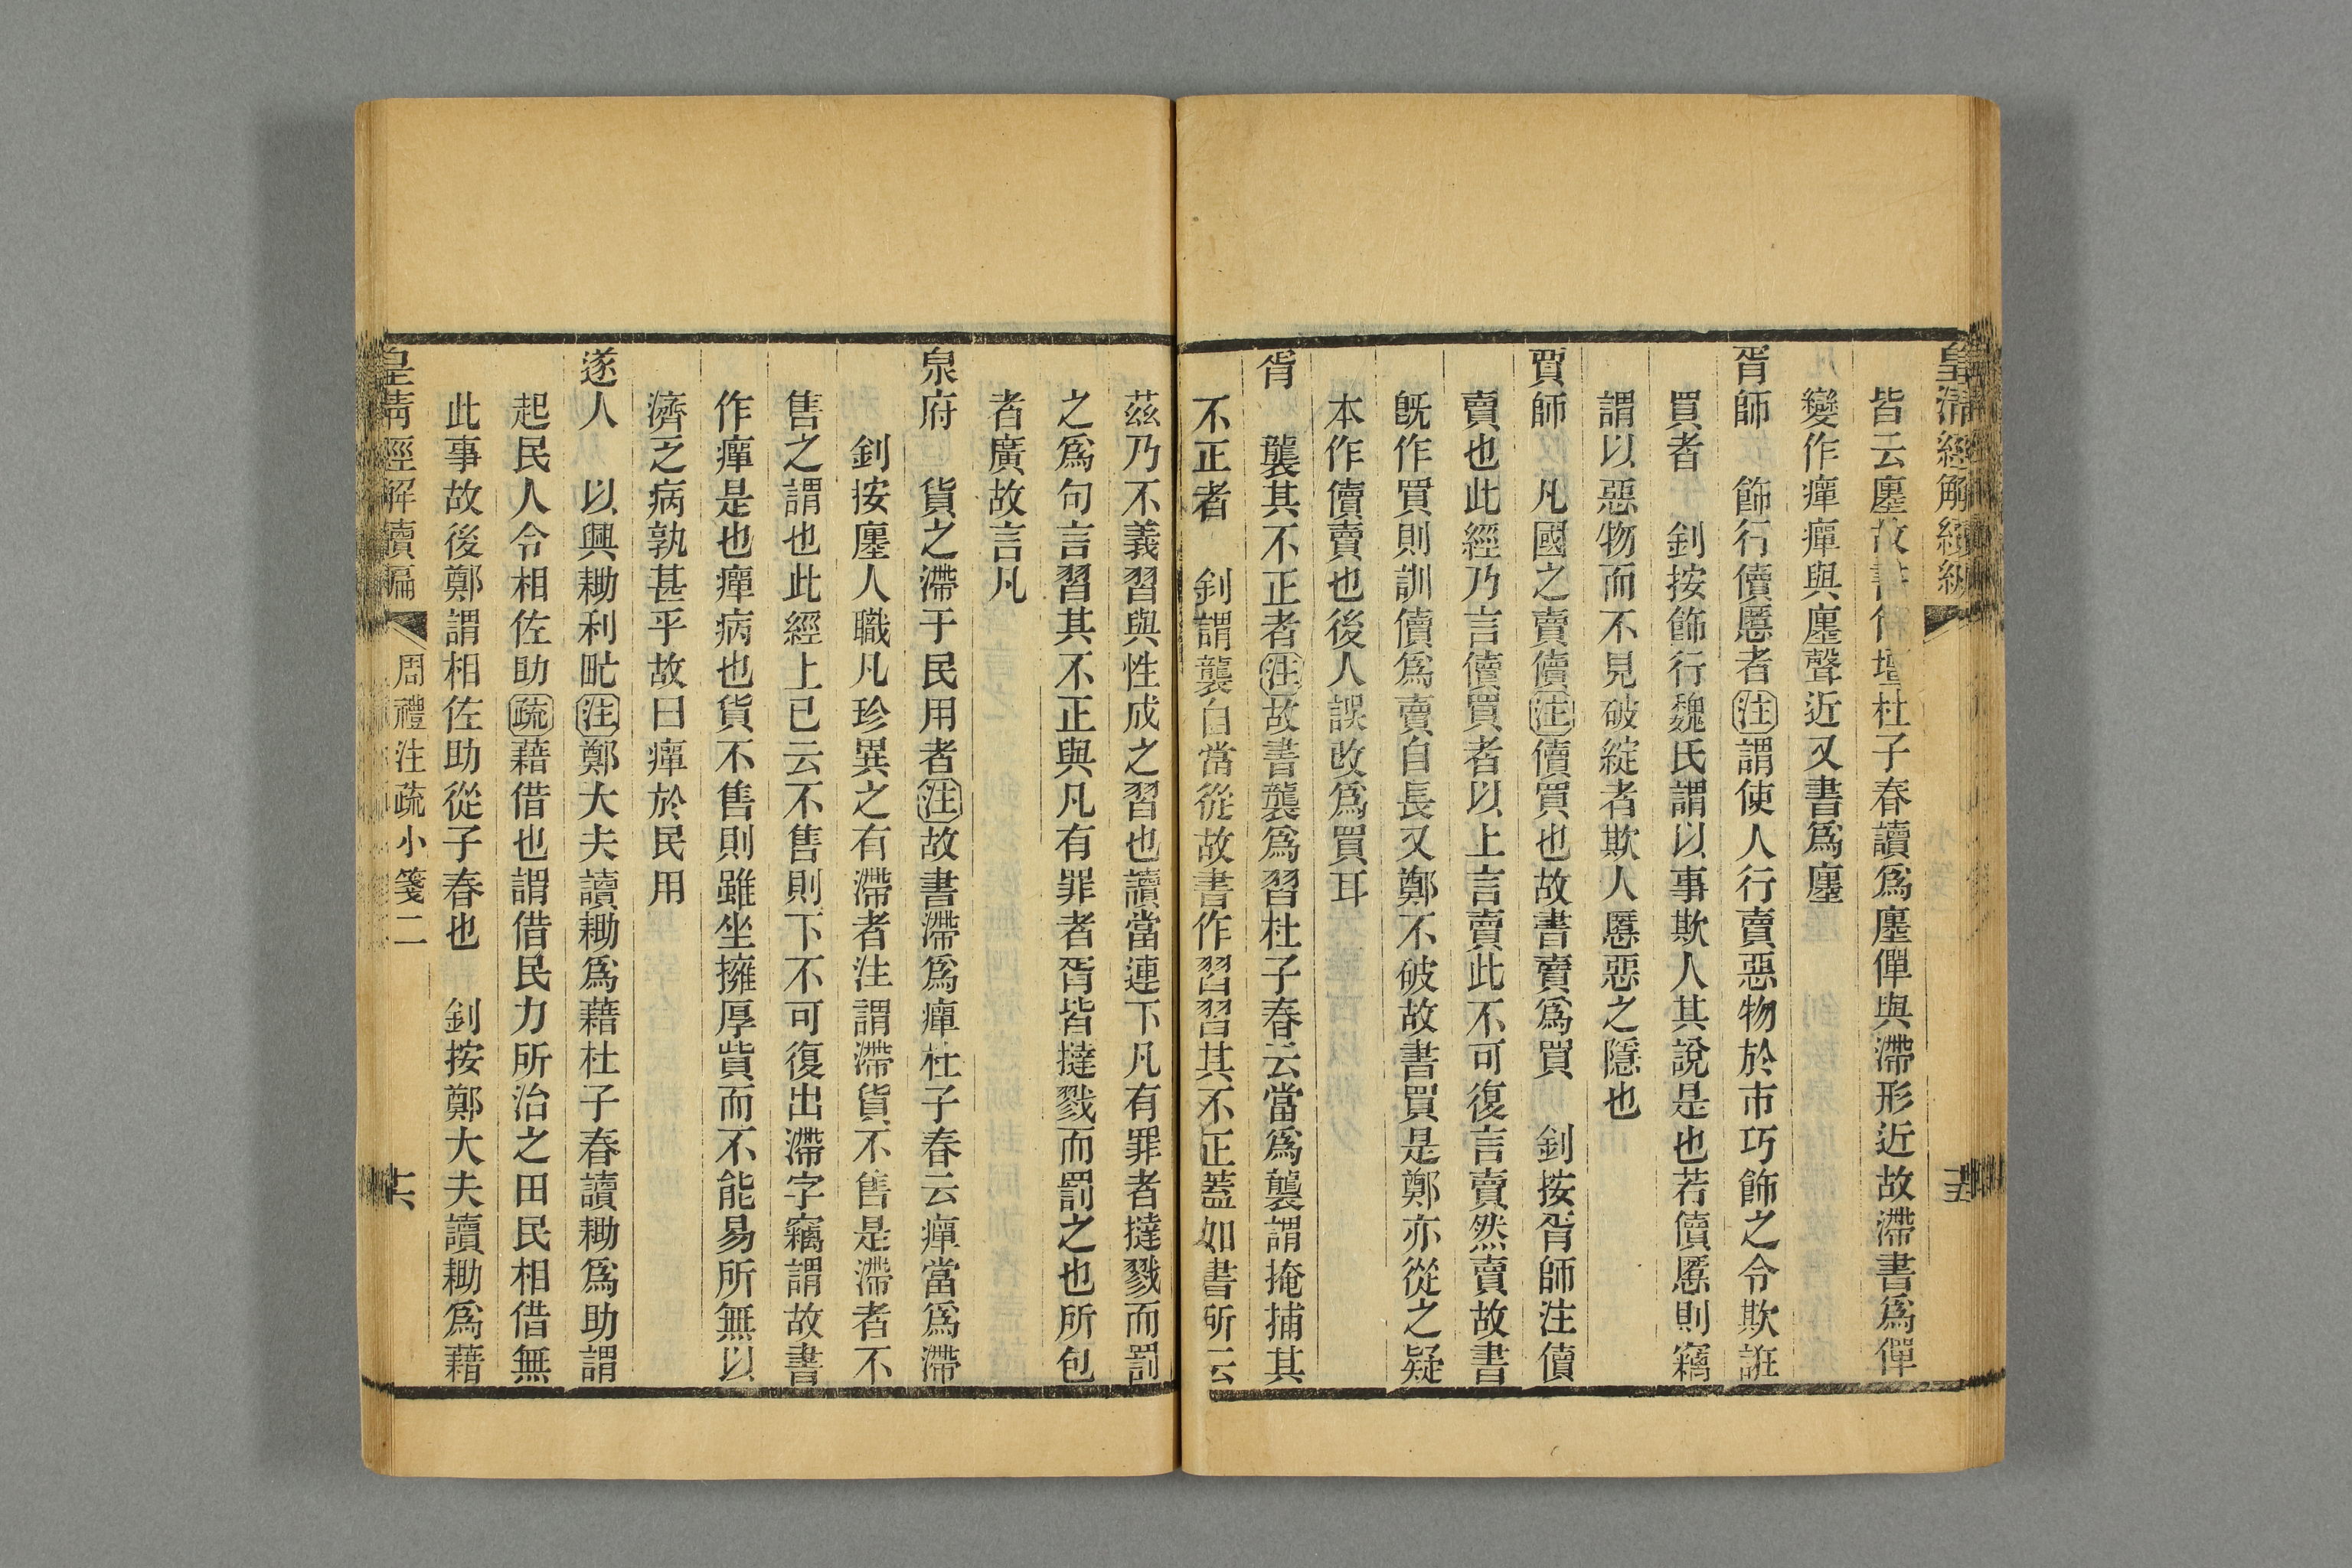 皇清經解續編
皆云廛故書作壇杜子春讀爲廛僤與滯形近故滯書爲僤
變作癉癉與廛聲近又書爲廛
胥師　飾行儥慝者注謂使人行賣惡物於市巧飾之令欺誑
買者　釗按飾行魏氏謂以事欺人其說是也若儥慝則竊
謂以惡物而不見破綻者欺人慝惡之隱也
賈師　凡國之賣儥注儥買也故書賣爲買　釗按胥師注儥
賣也此經乃言儥買者以上言賣此不可復言賣然賣故書
旣作買則訓儥爲賣自長又鄭不破故書買是鄭亦從之疑
本作儥賣也後人誤改爲買耳
胥　襲其不正者注故書襲爲習杜子春云當爲襲謂掩捕其
不正者　釗謂襲白當從故書作習習其不正蓋如書所云
茲乃不義習與性成之習也讀當連下凡有罪者撻戮而罰
之爲句言習其不正與凡有罪者胥皆撻戮而罰之也所包
者廣故言凡
泉府　貨之滯于民用者注故書滯爲癉杜子春云癉當爲滯
釗按廛人職凡珍異之有滯者注謂滯貨不售是滯者不
售之謂也此經上已云不售則下不可復出滯字竊謂故書
作癉是也癉病也貨不售則雖坐擁厚貲而不能易所無以
濟乏病孰甚乎故曰癉於民用
遂人　以興耡利甿注鄭大夫讀耡爲藉杜子春讀耡爲助謂
起民人令相佐助疏藉借也謂借民力所治之田民相借無
此事故後鄭謂相佐助從子春也　釗按鄭大夫讀耡爲藉
皇清經解續編　周禮注疏小箋二　十六